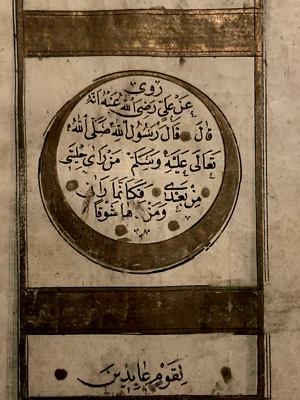 روى
عَنْ عَلِيّ رَضِىَ اللهُ عَنْهُ اَنَّهُ
قَالَ قَالَ رَسُولُ اللهِ صَلَّى اللهُ
تَعَالَى عَلَيْهِ وَسَلَّمَ مَنْ رَاى حِلْيَتِى
مِنْ بَعْدِى فَكَاَنَّمَا رَانِى
وَمَنْ رَاهَا شَوْقًا
لِقَوْمٍ عَابِدِينَ